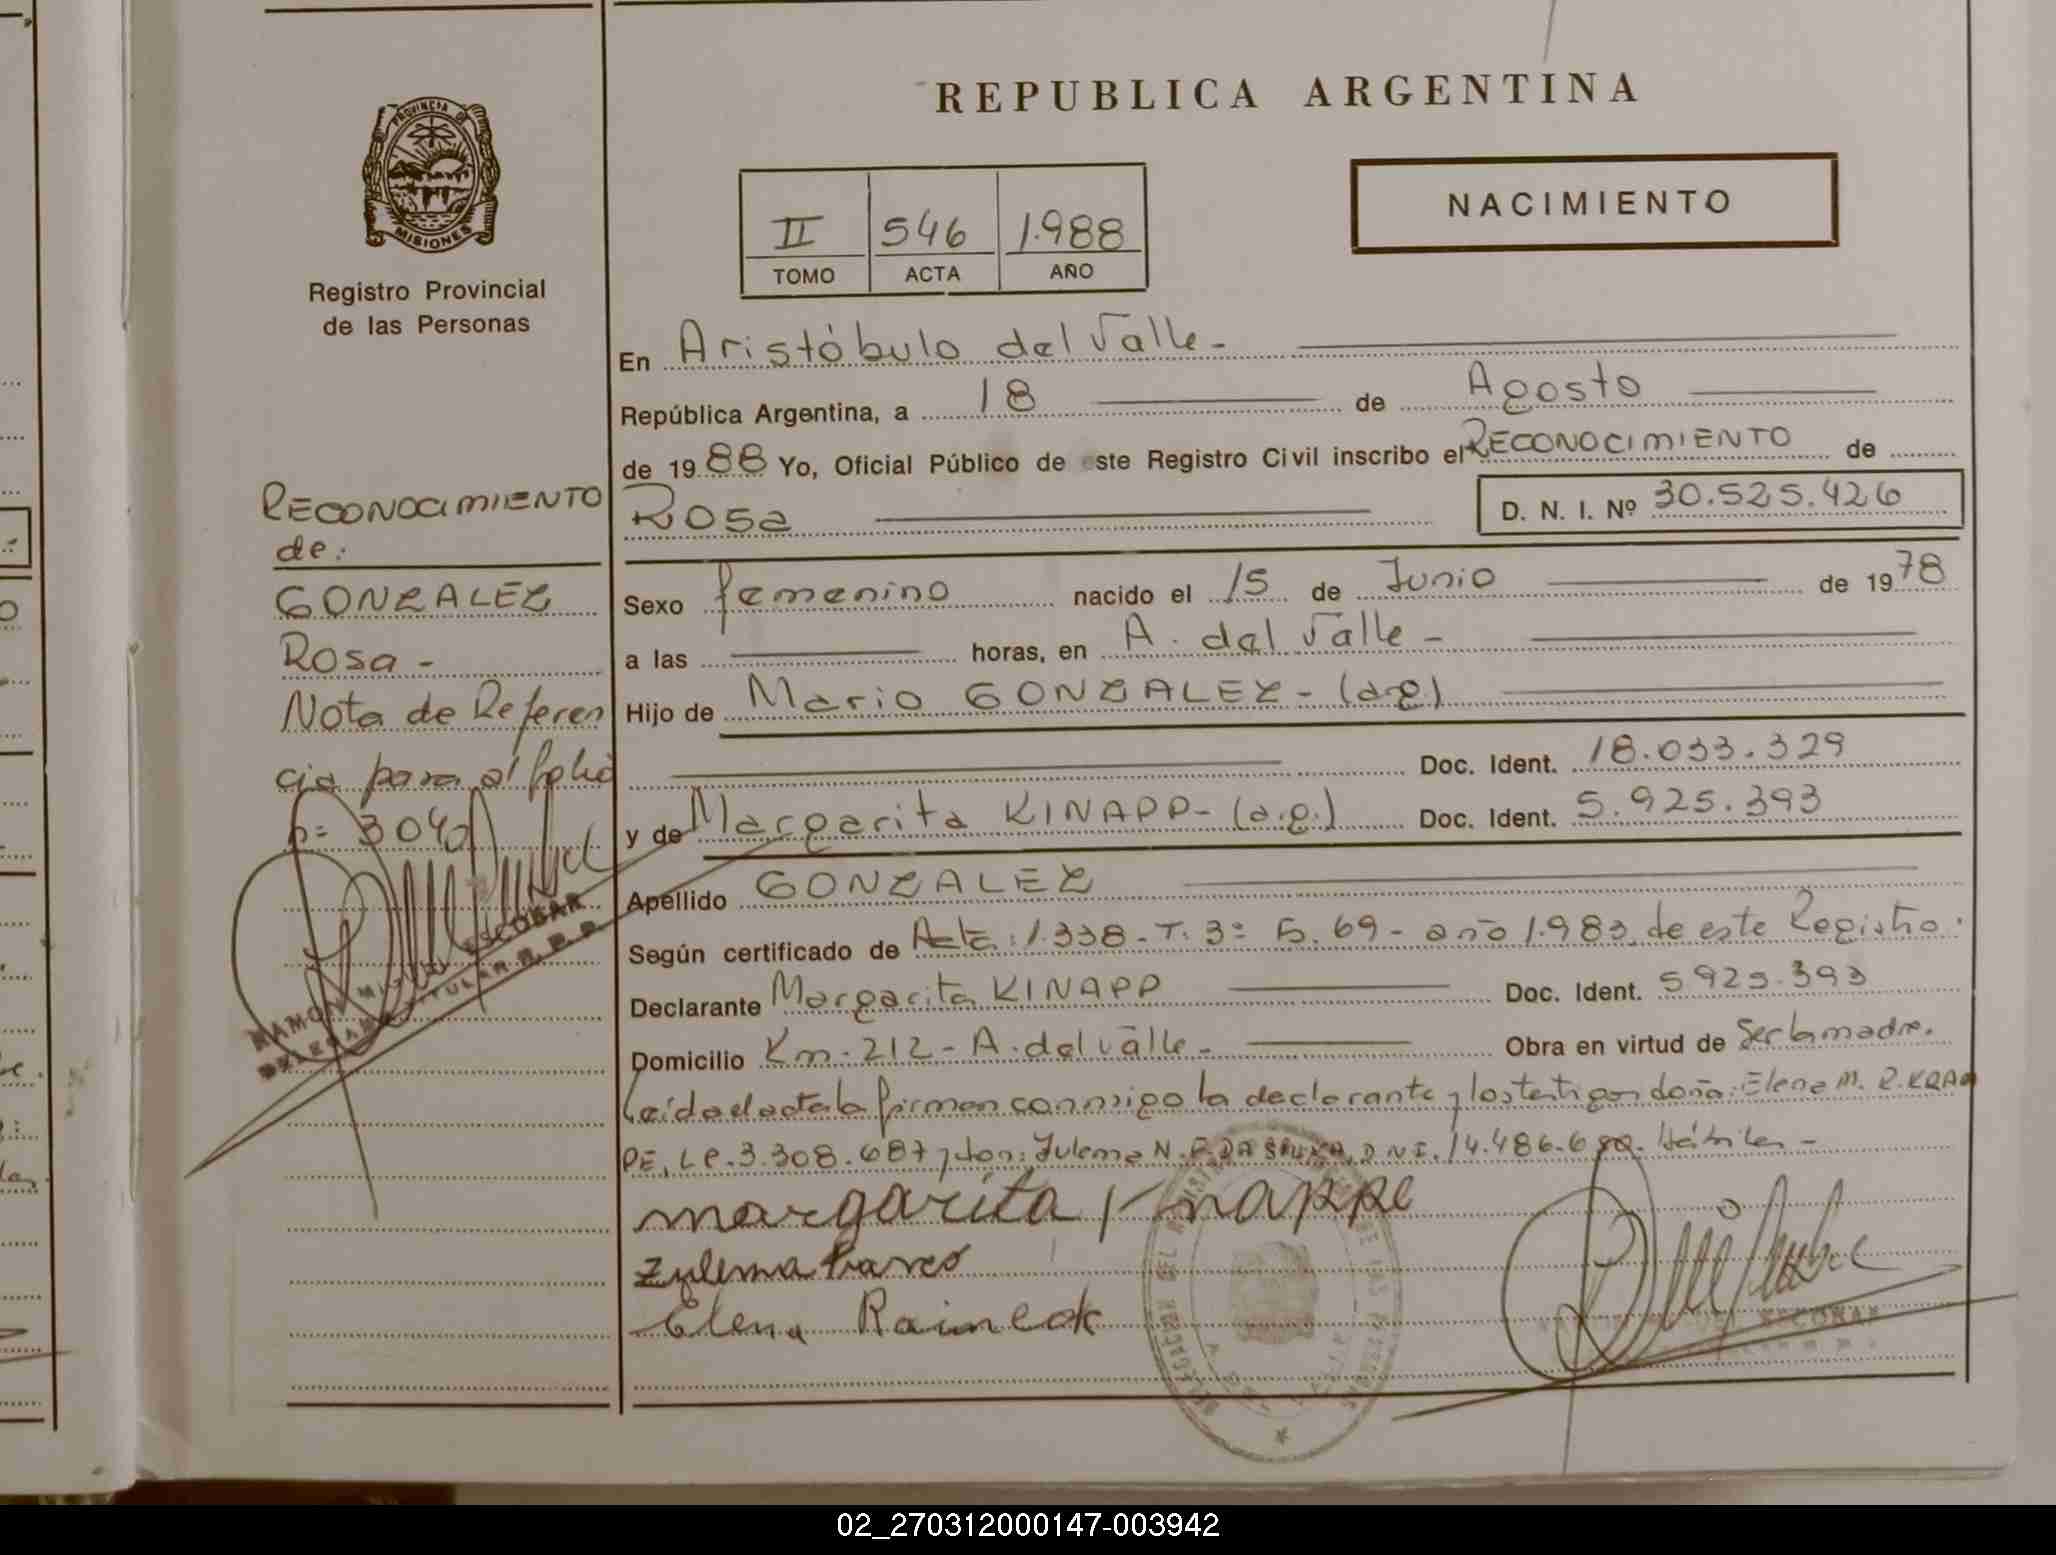 REPUBLICA ARGENTINA
PROVINCIA DE
MISIONES
Registro Provincial
de las Personas
II 546 1.988
TOMO ACTA AÑO
NACIMIENTO
En Aristóbulo del Valle-
República Argentina, a 18 de Agosto
de 1988 Yo, Oficial Público de este Registro Civil inscribo el RECONOCIMIENTO de
Rosa D. N. I. Nº 30.525.426
Sexo femenino nacido el 15 de Junio de 1978
a las horas, en A. del Valle-
Hijo de Mario GONZALEZ-(arg)
Doc. Ident. 18.033.329
y de Margarita KINAPP-(a.g.) Doc. Ident. 5.925.393
Apellido GONZALEZ
Según certificado de Acta: 1.338-T. 3= F. 69- año 1.983 de este Registro.
Declarante Margarita KINAPP Doc. Ident. 5925.393
Domicilio Km-212-A.del Valle- Obra en virtud de Ser la madre.
Leída el acta la firman conmigo la declarante y los testigos doña: Elena M. R. KRAM
PE, LC.3.308.687 y don: Zulema N. F. DA SILVA, DNI. 14.486.6 Hábiles-
margarita Knappe
Zulema
Elena Raineck
ESCOBAR
RECONOCIMIENTO
de:
GONZALEZ
Rosa-
Nota de Referen
cia para al folio
n= 3040
RAMON MIGUEL ESCOBAR
DELEGADO TITULAR R.P.P.
02_270312000147-003942